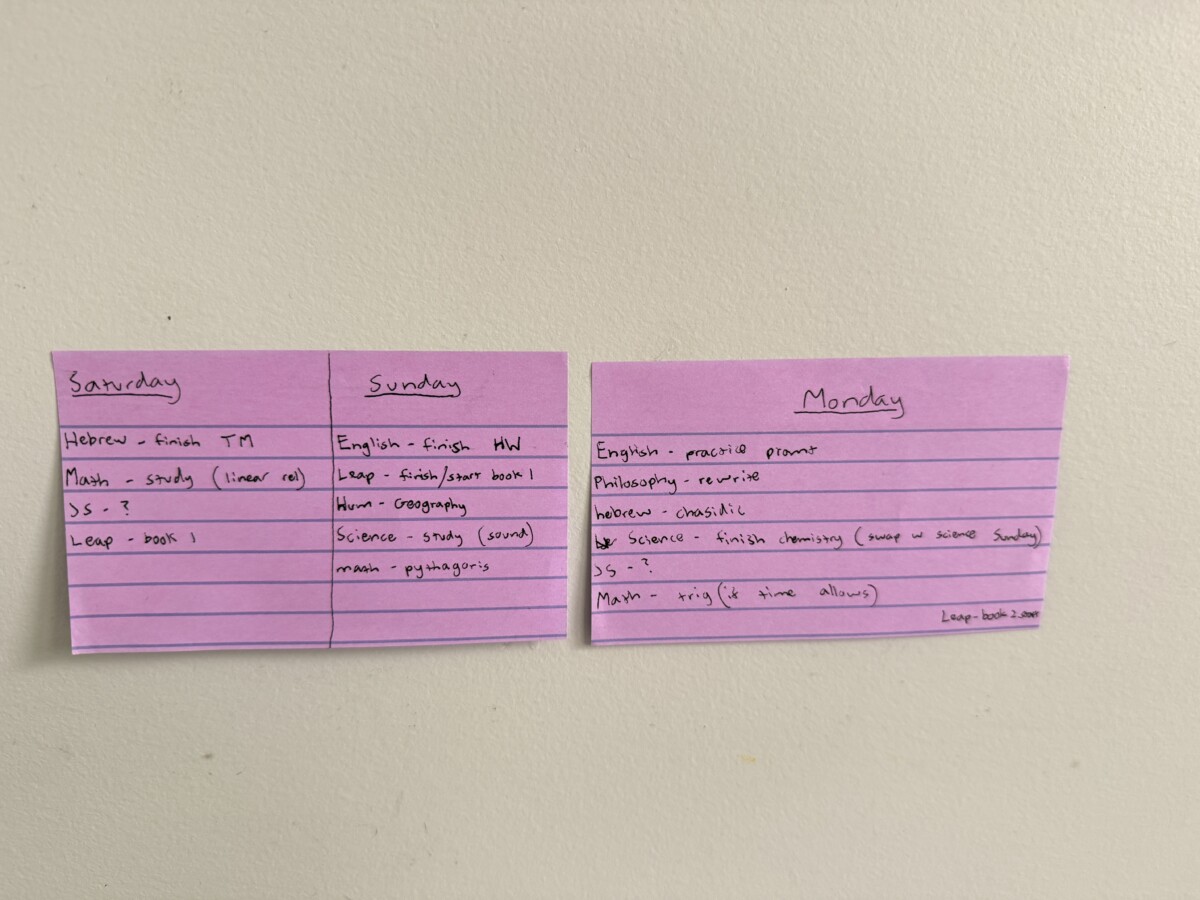 Saturday
Hebrew - finish TM
Math - study (linear rel)
JS - ?
Leap - book 1
Sunday
English - finish HW
Leap - finish/start book 1
Hum - Geography
Science - study (sound)
math - pythagoris
Monday
English - practice promt
Philosophy - rewrite
hebrew - chasidic
Science - finish chemistry (swap w science Sunday)
JS - ?
Math - trig (if time allows)
Leap - book 2 start